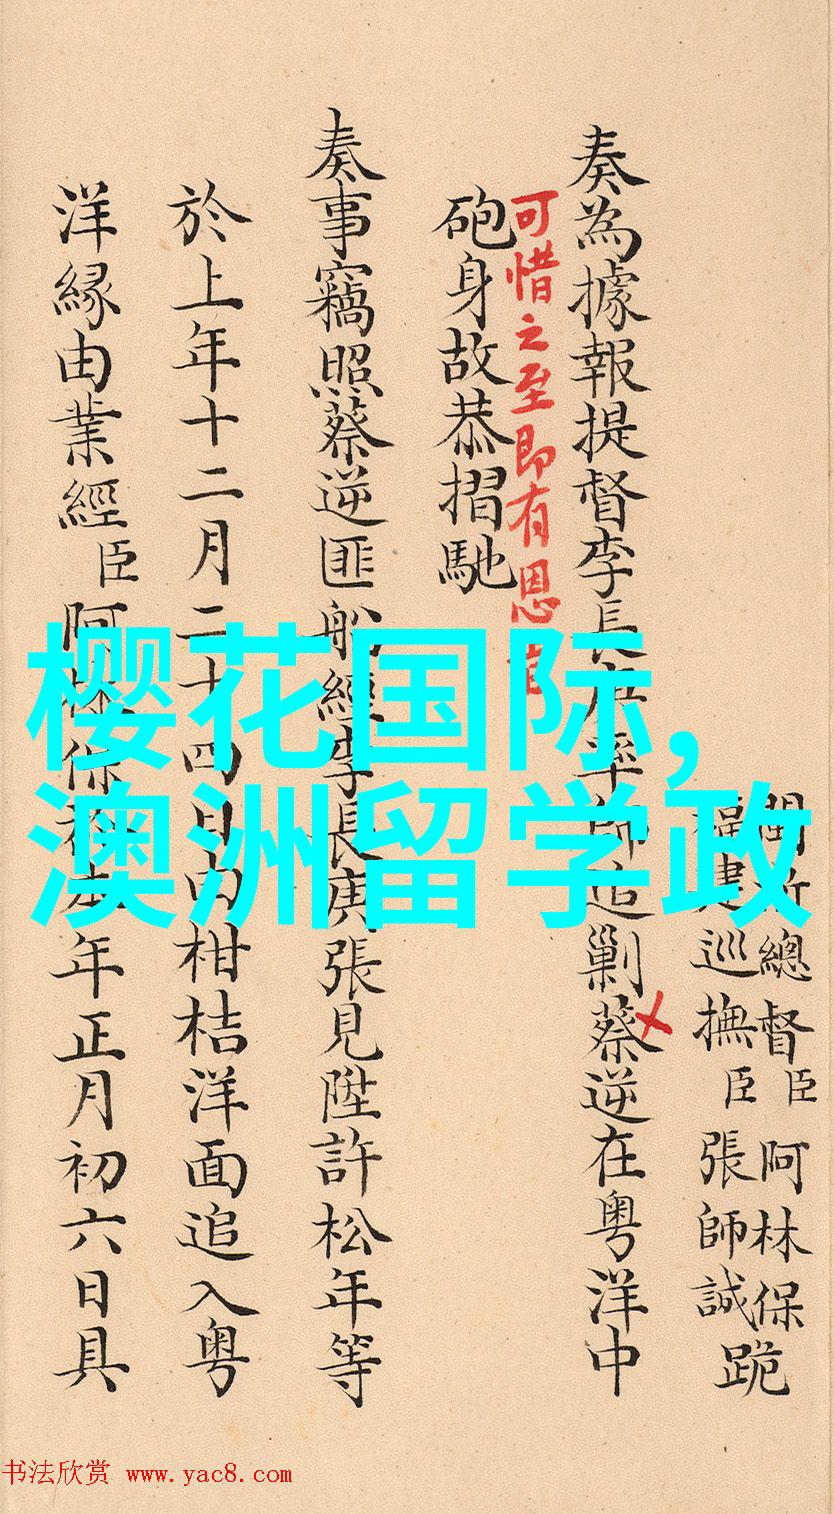 閩浙總督臣阿林保
福建巡撫臣張師誠跪
奏為據報提督李長庚率師追剿蔡逆在粵洋中
可惜之至即有恩旨
砲身故恭摺馳
奏事竊照蔡逆匪船經李長庚張見陞許松年等
於上年十二月二十四日由柑桔洋面追入粵
洋緣由業經臣阿林保於本年正月初六日具
樱花国际,
澳洲留学政
书法欣赏 www.yac8.com